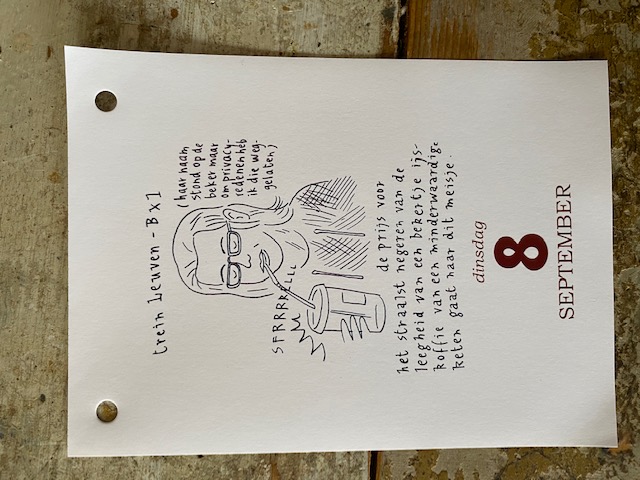 trein Leuven - BXl
(haar naam
stond op de
beker maar
om privacy-
redenen heb
ik die weg-
gelaten)
SFRRRRELLL
de prijs voor
het straalst negeren van de
leegheid van een bekertje ijs-
koffie van een minderwaardige
keten gaat naar dit meisje.
dinsdag
8
SEPTEMBER